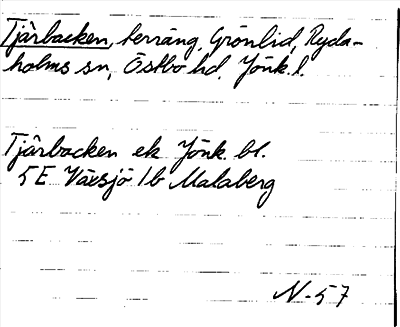 Tjärbacken, terräng, Grönlid, Ryda-
holms sn, Östbo hd, Jönk. l.
Tjärbacken ek Jönk. bl.
5E Växsjö 1b Malaberg
N-57